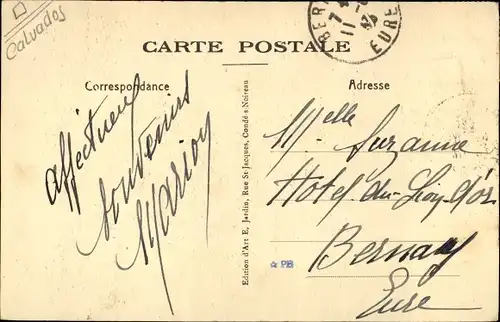 Calvados
CARTE POSTALE
BER
EURE
Correspondance
Adresse
Affectueux
souvenirs
Marion
Edition d'Art E. Jardin, Rue St-Jacques, Condé s Noireau
Melle Suzanne
Hotel du Lion d'or
Bernay
Eure
PB